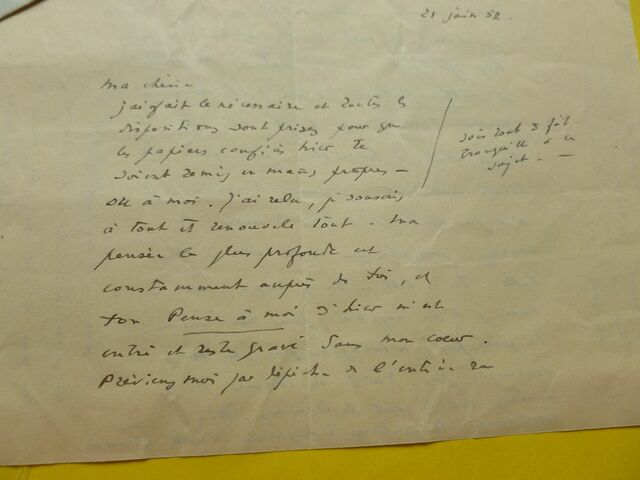 21 juin 52.
Ma chérie
j'ai fait le nécessaire et toutes les
dispositions sont prises pour que
les papiers confiés hier te
soient remis en mains propres -
ou à moi. J'ai relu, je souscris
à tout et renouvelle tout. Ma
pensée la plus profonde est
constamment auprès de toi, et
ton Pense à moi d'hier m'est
entré et reste gravé dans mon coeur.
Préviens moi par dépêche de l'entrée en
sois tout à fait
tranquille à ce
sujet. -